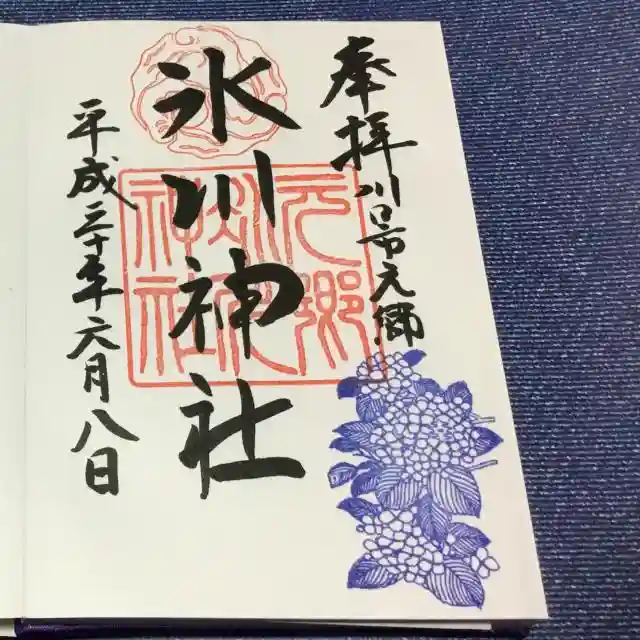 奉拝 川口市元郷
氷川神社
平成三十年六月八日
元郷
氷川
神社